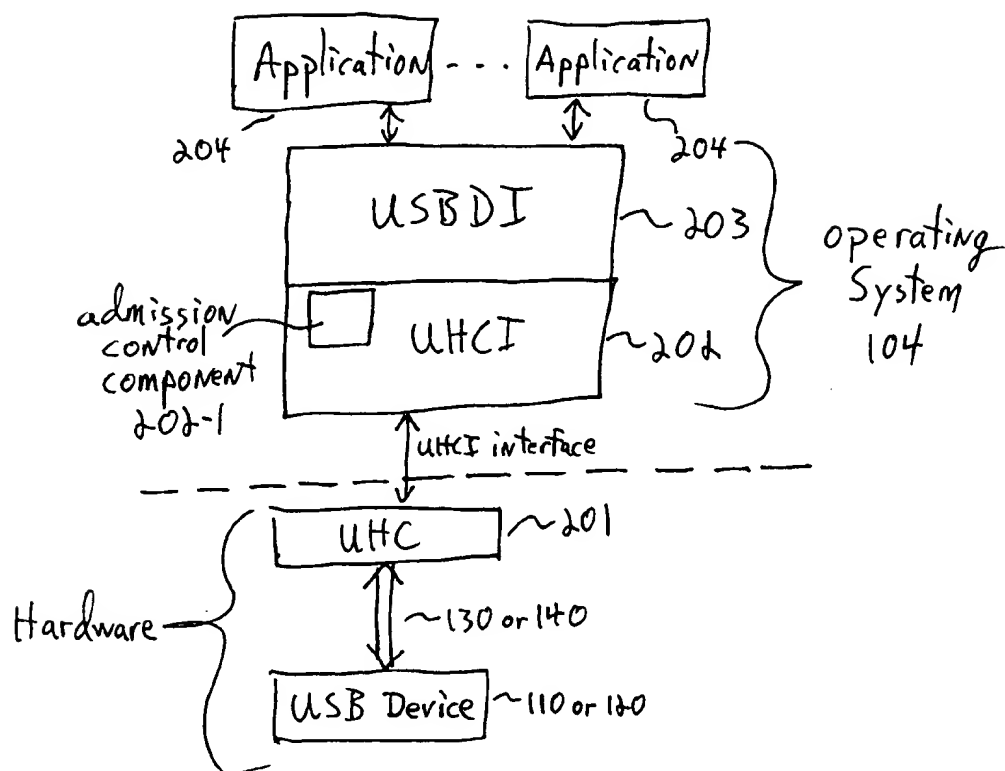 Application
- - -
Application
204
204
USBDI
203
operating
System
104
admission
control
component
202-1
UHCI
202
UHCI interface
UHC
201
Hardware
130 or 140
USB Device
110 or 120